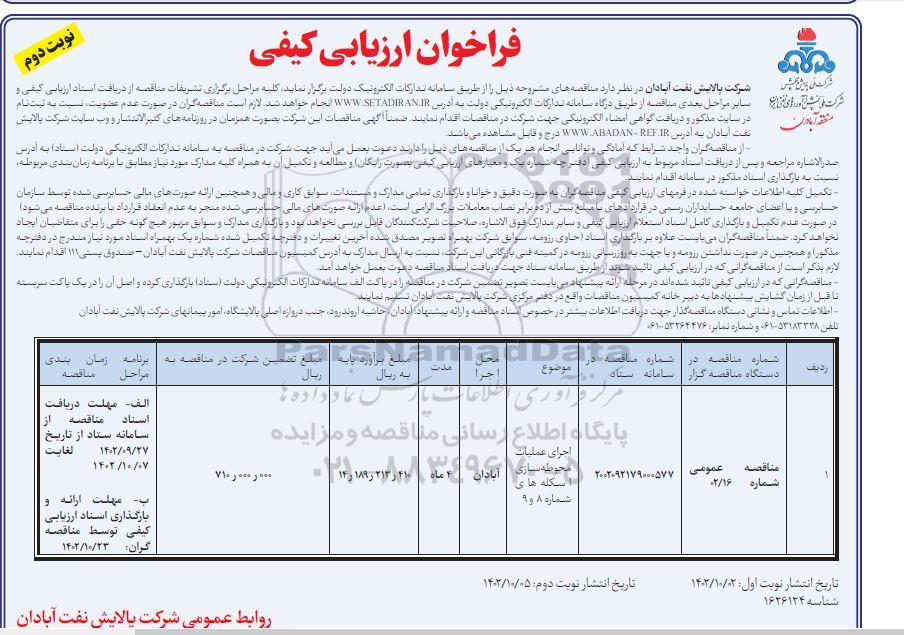 نوبت دوم
فراخوان ارزیابی کیفی
شرکت ملی پالایش و پخش
منطقه آبادان
شرکت پالایش نفت آبادان در نظر دارد مناقصه‌های مشروحه ذیل را از طریق سامانه تدارکات الکترونیک دولت برگزار نماید، کلیه مراحل برگزاری تشریفات مناقصه از دریافت اسناد ارزیابی کیفی و
سایر مراحل بعدی مناقصه از طریق درگاه سامانه تدارکات الکترونیکی دولت به آدرس WWW.SETADIRAN.IR انجام خواهد شد. لازم است مناقصه‌گران در صورت عدم عضویت، نسبت به ثبت‌نام
در سایت مذکور و دریافت گواهی امضاء الکترونیکی جهت شرکت در مناقصات اقدام نمایند. ضمناً آگهی مناقصات این شرکت بصورت همزمان در روزنامه‌های کثیرالانتشار و وب سایت شرکت پالایش
نفت آبادان به آدرس WWW.ABADAN- REF.IR درج و قابل مشاهده می‌باشد.
- از مناقصه‌گران واجد شرایط که آمادگی و توانایی انجام هر یک از مناقصه‌های ذیل را دارند دعوت بعمل می‌آید جهت شرکت در مناقصه به سامانه تدارکات الکترونیکی دولت (ستاد) به آدرس
صدرالاشاره مراجعه و پس از دریافت اسناد مربوط به ارزیابی کیفی (دفترچه شماره یک و معیارهای ارزیابی کیفی بصورت رایگان) و مطالعه و تکمیل آن به همراه کلیه مدارک مورد نیاز مطابق با برنامه زمان‌بندی مربوطه،
نسبت به بارگذاری اسناد مذکور در سامانه اقدام نمایند.
- تکمیل کلیه اطلاعات خواسته شده در فرمهای ارزیابی کیفی مناقصه‌گران به صورت دقیق و خوانا و بارگذاری تمامی مدارک و مستندات، سوابق کاری و مالی و همچنین ارائه صورت‌های مالی حسابرسی شده توسط سازمان
حسابرسی و یا اعضای جامعه حسابداران رسمی در قراردادهای با مبلغ بیش از ده برابر نصاب معاملات بزرگ الزامی است، (عدم ارائه صورت‌های مالی حسابرسی شده منجر به عدم انعقاد قرارداد با برنده مناقصه می‌شود)
در صورت عدم تکمیل و بارگذاری کامل اسناد استعلام ارزیابی کیفی و سایر مدارک فوق الاشاره، صلاحیت شرکت‌کنندگان قابل بررسی نخواهد بود و بارگذاری مدارک و سوابق مزبور هیچ گونه حقی را برای متقاضیان ایجاد
نخواهد کرد. ضمناً مناقصه‌گران می‌بایست علاوه بر بارگذاری اسناد (حاوی رزومه، سوابق شرکت بهمراه تصویر مصدق شده آخرین تغییرات و دفترچه تکمیل شده شماره یک بهمراه اسناد مورد نیاز مندرج در دفترچه
مذکور) و همچنین در صورت نداشتن رزومه و یا جهت به روزرسانی رزومه در کمیته فنی بازرگانی این شرکت، نسبت به ارسال مدارک به آدرس کمیسیون مناقصات شرکت پالایش نفت آبادان – صندوق پستی ۱۱۱ اقدام نمایند.
لازم بذکر است از مناقصه‌گرانی که در ارزیابی کیفی تائید شوند از طریق سامانه ستاد جهت دریافت اسناد مناقصه دعوت بعمل خواهد آمد.
- مناقصه‌گرانی که در ارزیابی کیفی تائید شده‌اند در مرحله ارائه پیشنهاد می‌بایست تصویر تضمین شرکت در مناقصه را در پاکت الف سامانه تدارکات الکترونیکی دولت (ستاد) بارگذاری کرده و اصل آن را در یک پاکت سربسته
تا قبل از زمان گشایش پیشنهادها به دبیر خانه کمیسیون مناقصات واقع در دفتر مرکزی شرکت پالایش نفت آبادان تسلیم نمایند.
- اطلاعات تماس و نشانی دستگاه مناقصه‌گذار جهت دریافت اطلاعات بیشتر در خصوص اسناد مناقصه و ارائه پیشنهاد: آبادان، حاشیه اروندرود، جنب دروازه اصلی پالایشگاه، امور پیمانهای شرکت پالایش نفت آبادان
تلفن ۵۳۱۸۳۳۳۸-۰۶۱ و شماره نمابر: ۵۳۲۶۴۴۷۶-۰۶۱
ردیف
شماره مناقصه در
دستگاه مناقصه گزار
شماره مناقصه در
سامانه ستاد
موضوع
محل
اجرا
مدت
مبلغ برآورد پایه
به ریال
مبلغ تضمین شرکت در مناقصه به
ریال
برنامه زمان بندی
مراحل مناقصه
۱
مناقصه عمومی
شماره ۰۲/۱۶
۲۰۰۲۰۹۲۱۷۹۰۰۰۵۷۷
اجرای عملیات
محوطه‌سازی
اسکله های
شماره ۸ و ۹
آبادان
۴ ماه
۱۴ر۱۸۹ر۲۱۳ر۴۱۰
۷۱۰ر۰۰۰ر۰۰۰
الف- مهلت دریافت
اسناد مناقصه از
سامانه ستاد از تاریخ
۱۴۰۲/۰۹/۲۷ لغایت
۱۴۰۲/۱۰/۰۷
ب- مهلت ارائه و
بارگذاری اسناد ارزیابی
کیفی توسط مناقصه
گران: ۱۴۰۲/۱۰/۲۳
ParsNamadData
مرکز فرآوری اطلاعات پارس نماد داده‌ها
پایگاه اطلاع رسانی مناقصه و مزایده
۰۲۱-۸۸۳۴۹۶۷۰-۵
تاریخ انتشار نوبت اول: ۱۴۰۲/۱۰/۰۲
تاریخ انتشار نوبت دوم: ۱۴۰۲/۱۰/۰۵
شناسه ۱۶۲۶۱۲۴
روابط عمومی شرکت پالایش نفت آبادان